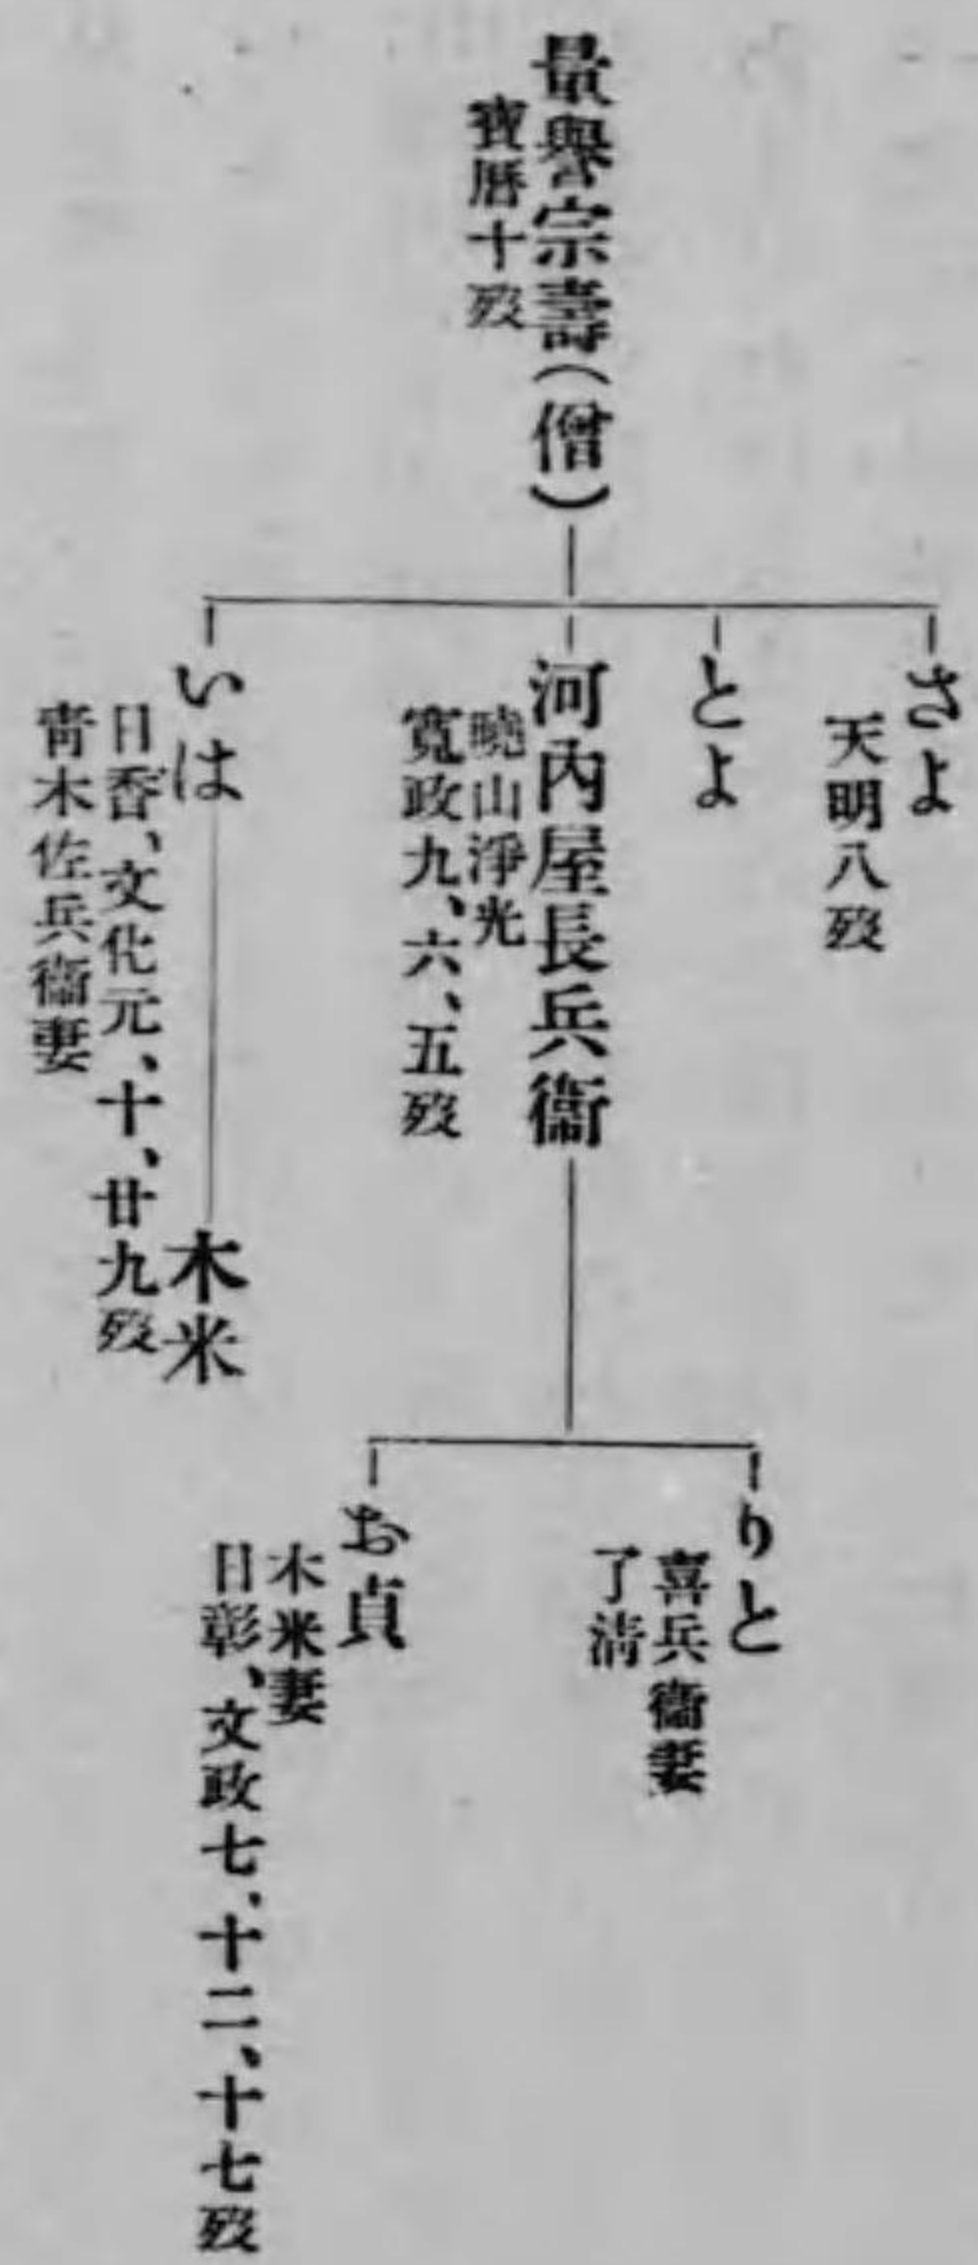 最譽宗壽(僧)
寶曆十歿
さよ
天明八歿
とよ
河內屋長兵衞
曉山淨光
寬政九、六、五歿
いは
日香、文化元、十、廿九歿
靑木佐兵衞妻
木米
りと
喜兵衞妻
了淸
お貞
木米妻
日彰、文政七、十二、十七歿